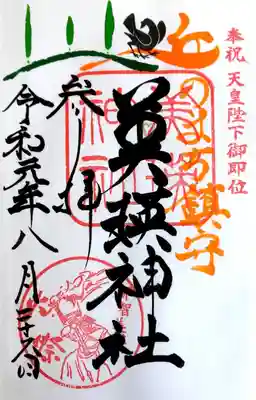 奉祝 天皇陛下御即位
丘のまち鎮守
美瑛神社
参拝
令和元年八月二十八日